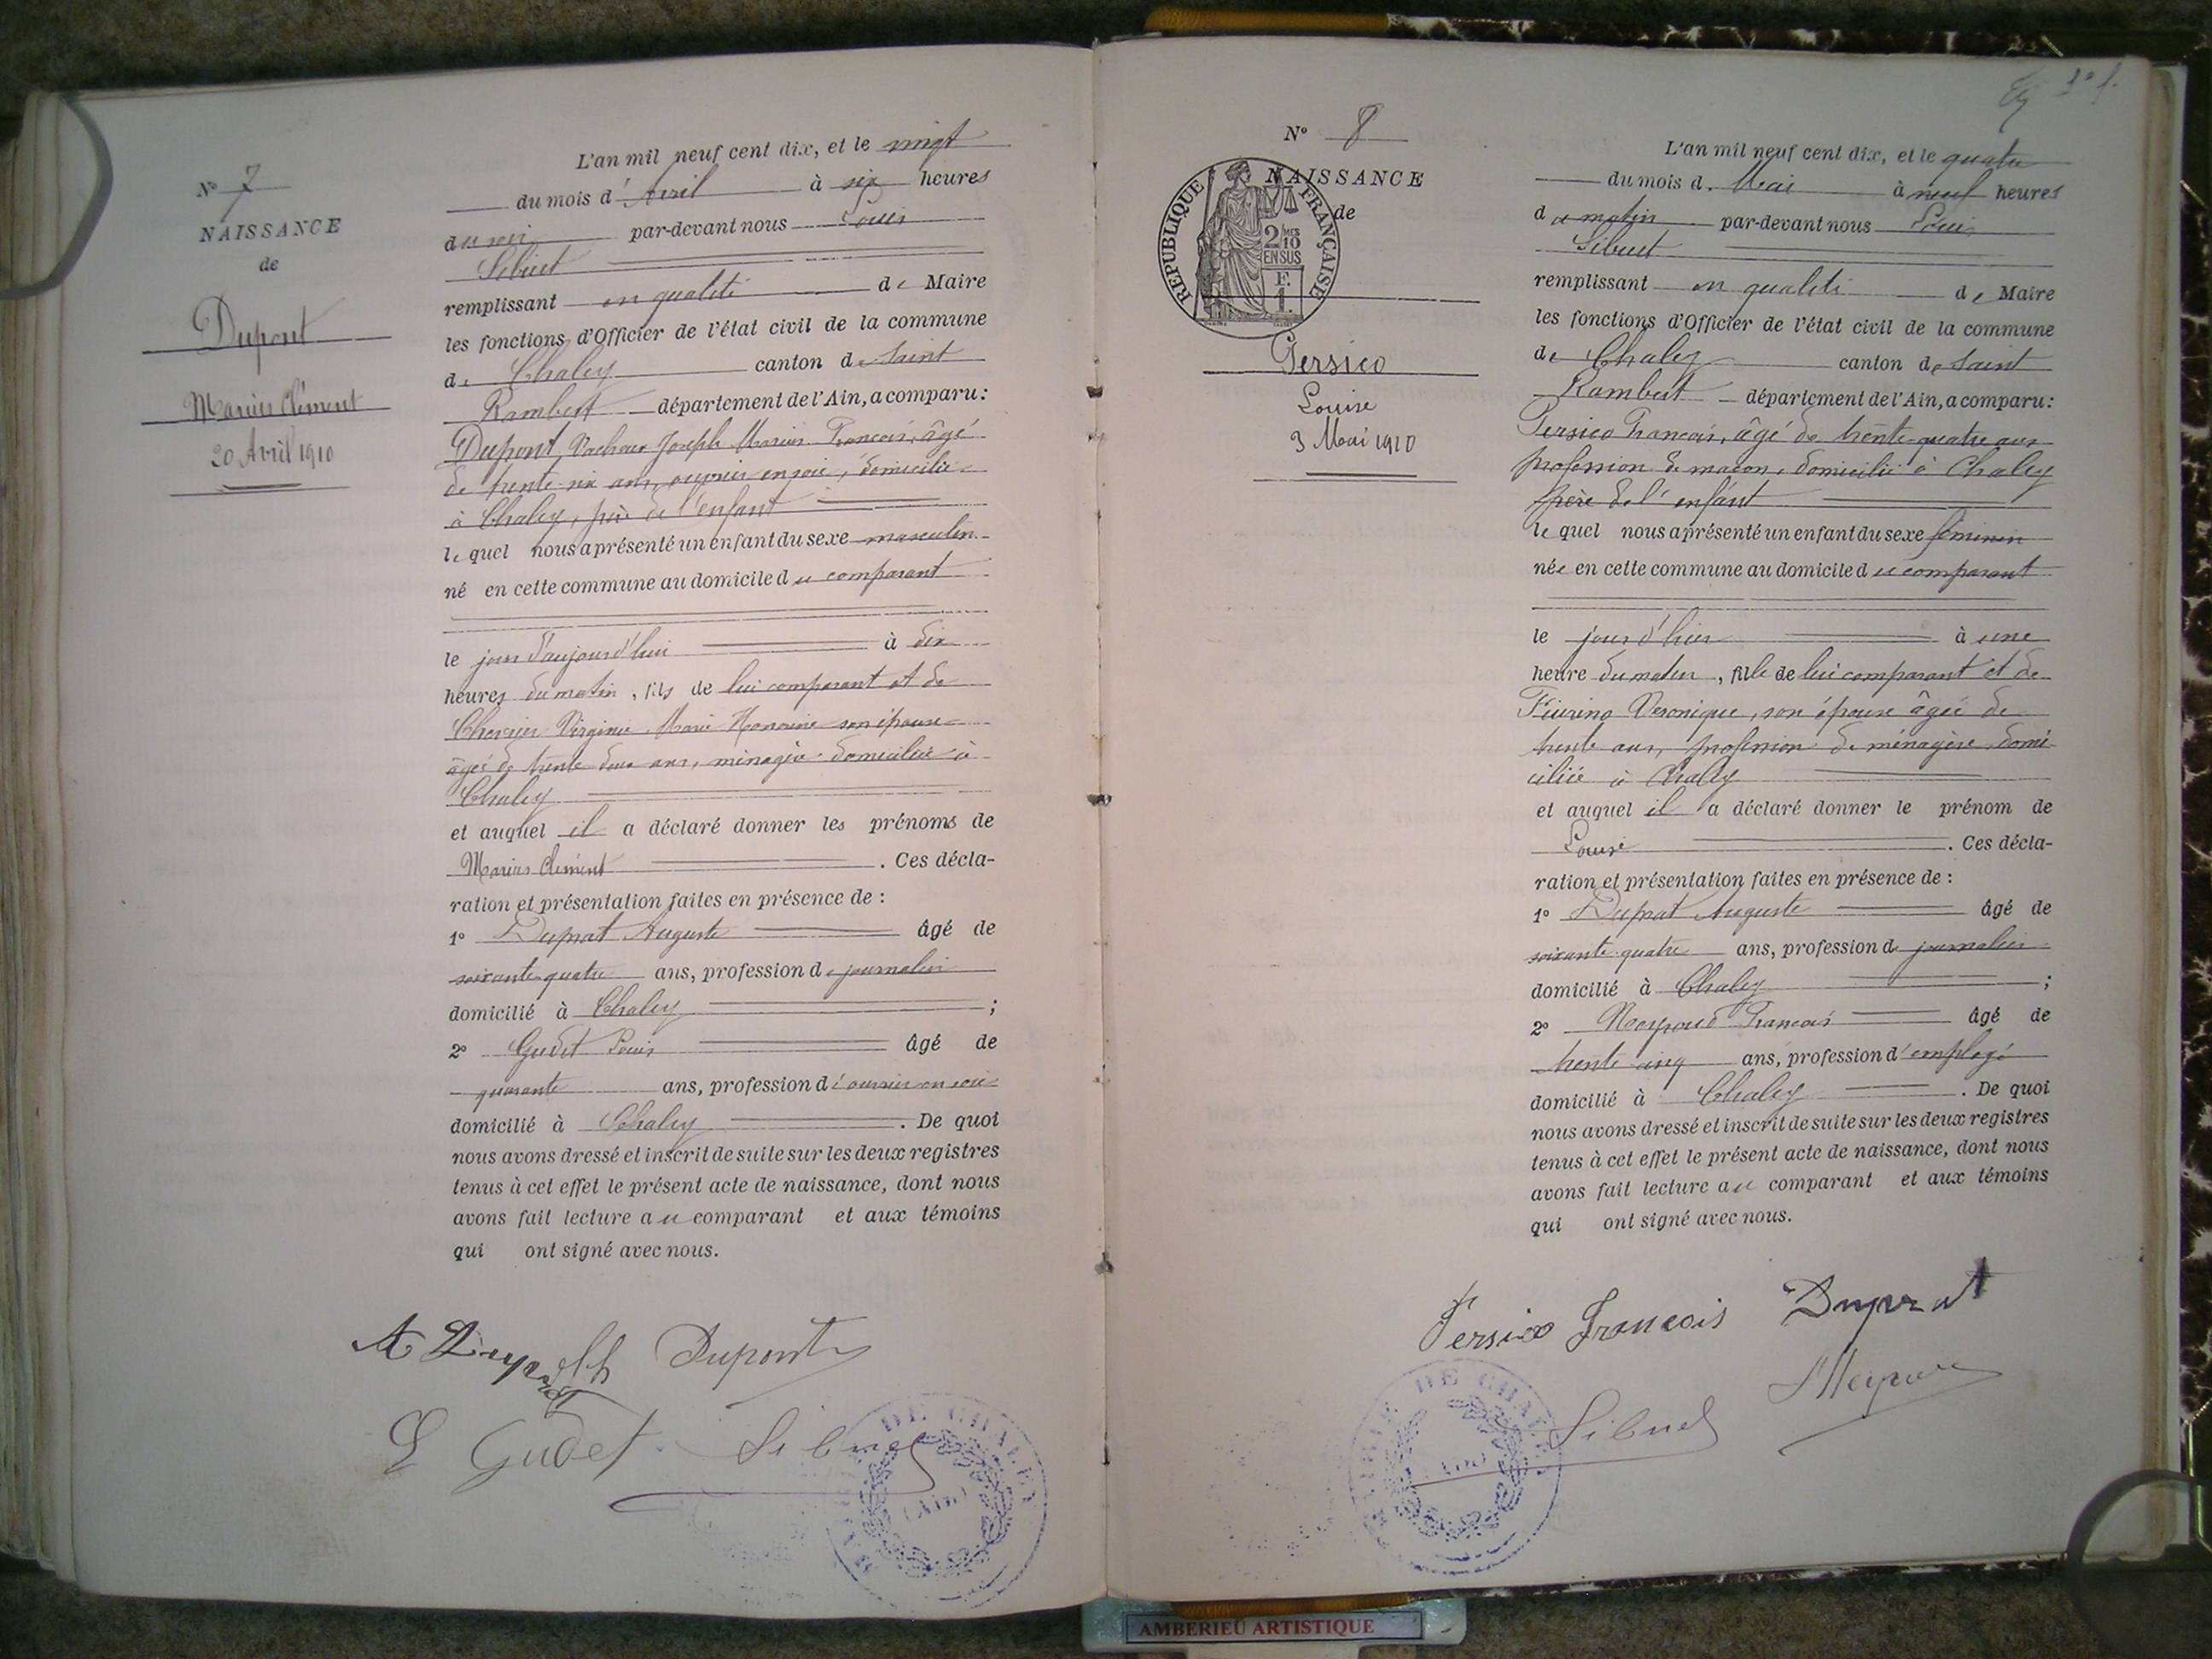 N° 7
NAISSANCE
de
Dupont
Marius Clément
20 Avril 1910
L'an mil neuf cent dix, et le vingt
du mois d' Avril à six heures
du soir par-devant nous Louis
Sibuet
remplissant en qualité de Maire
les fonctions d'Officier de l'état civil de la commune
de Chaley canton de Saint
Rambert département de l'Ain, a comparu:
Dupont Joseph Marius François, âgé
de trente six ans, ouvrier en soie, domicilié
à Chaley, père de l'enfant
lequel nous a présenté un enfant du sexe masculin
né en cette commune au domicile du comparant
le jour d'aujourd'hui à dix
heures du matin, fils de lui comparant et de
Virginie Marie son épouse
âgée de trente deux ans, ménagère domiciliée à
Chaley
et auquel il a déclaré donner les prénoms de
Marius Clément. Ces décla-
ration et présentation faites en présence de :
1° Duprat Auguste âgé de
soixante quatre ans, profession de journalier
domicilié à Chaley ;
2° Gudet Louis âgé de
quarante ans, profession d'ouvrier en soie
domicilié à Chaley. De quoi
nous avons dressé et inscrit de suite sur les deux registres
tenus à cet effet le présent acte de naissance, dont nous
avons fait lecture au comparant et aux témoins
qui ont signé avec nous.
Dupont
L Gudet Sibuet
DE CHALEY
(Ain)
N° 8
NAISSANCE
de
REPUBLIQUE FRANÇAISE
2/10 EN SUS
F. 1.
Persico
Louise
3 Mai 1910
L'an mil neuf cent dix, et le quatre
du mois de Mai à neuf heures
du matin par-devant nous Louis
Sibuet
remplissant en qualité de Maire
les fonctions d'Officier de l'état civil de la commune
de Chaley canton de Saint
Rambert département de l'Ain, a comparu:
Persico François, âgé de trente-quatre ans
profession de maçon, domicilié à Chaley
père de l'enfant
lequel nous a présenté un enfant du sexe féminin
née en cette commune au domicile du comparant
le jour d'hier à une
heure du matin, fille de lui comparant et de
Fiurino Veronique, son épouse âgée de
trente ans, profession de ménagère, domi-
ciliée à Chaley
et auquel il a déclaré donner le prénom de
Louise. Ces décla-
ration et présentation faites en présence de :
1° Duprat Auguste âgé de
soixante quatre ans, profession de journalier
domicilié à Chaley ;
2° François âgé de
trente cinq ans, profession d'employé
domicilié à Chaley. De quoi
nous avons dressé et inscrit de suite sur les deux registres
tenus à cet effet le présent acte de naissance, dont nous
avons fait lecture au comparant et aux témoins
qui ont signé avec nous.
Persico François Duprat
Sibuet
DE CHALEY
(Ain)
AMBERIEU ARTISTIQUE